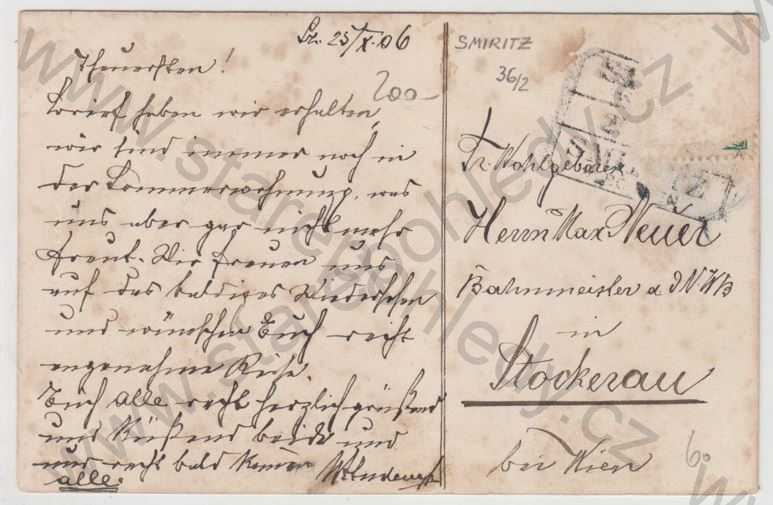 Sr. 25/X.06
Theuersten!
Brief haben wir erhalten,
wir sind immer noch in
der Sommerwohnung, was
uns aber gar nicht mehr
freut. Wir freuen uns
auf das baldige Wiedersehen
und wünschen Euch recht
angenehme Reise.
Euch alle recht herzlich grüßend
und Küssend beide und
uns recht bald
alle.
200-
SMIRITZ
36/2
Sr. Wohlgeboren
Herrn Max Neuer
Bahnmeister d. N.W.B
in
Stockerau
bei Wien
60
www.starepohledy.cz